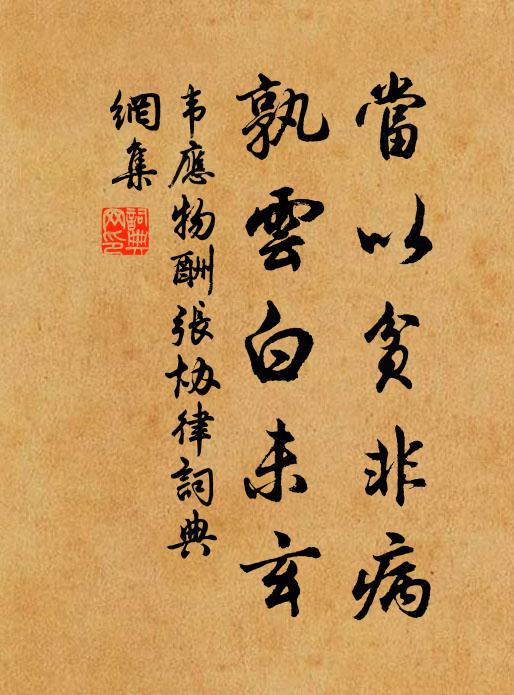 當以貧非病
孰雲白未玄
韦應物酬張协律詞典
網集
詞典
网印